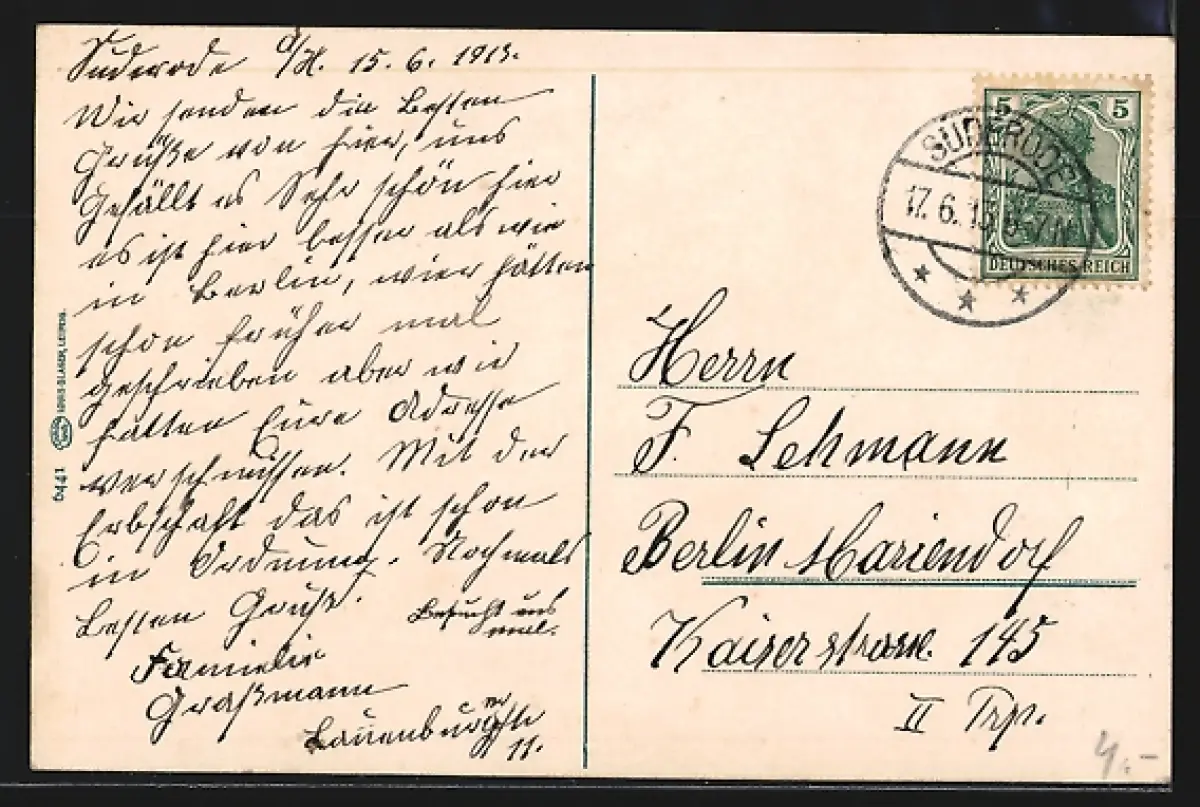 Suderode a/H. 15.6.1913.
Wir senden die besten
Grüße von hier, uns
Gefällt es Sehr schön hier
es ist hier besser als wie
in Berlin, wier hätten
schon früher mal
geschrieben aber wir
hatten Eure Adresse
verschmissen. Mit der
Erbschaft das ist schon
in Ordnung. Nochmals
besten Gruß.
Besucht uns
mal.
Familie
Graßmann
Lauenburgerstr
11.
6441 LOUIS GLASER, LEIPZIG.
5 5
DEUTSCHES REICH
SUDERODE
17.6.13. 6-7N
Herrn
F. Lehmann
Berlin Mariendorf
Kaiserstrasse. 145
II Trp.
4.-